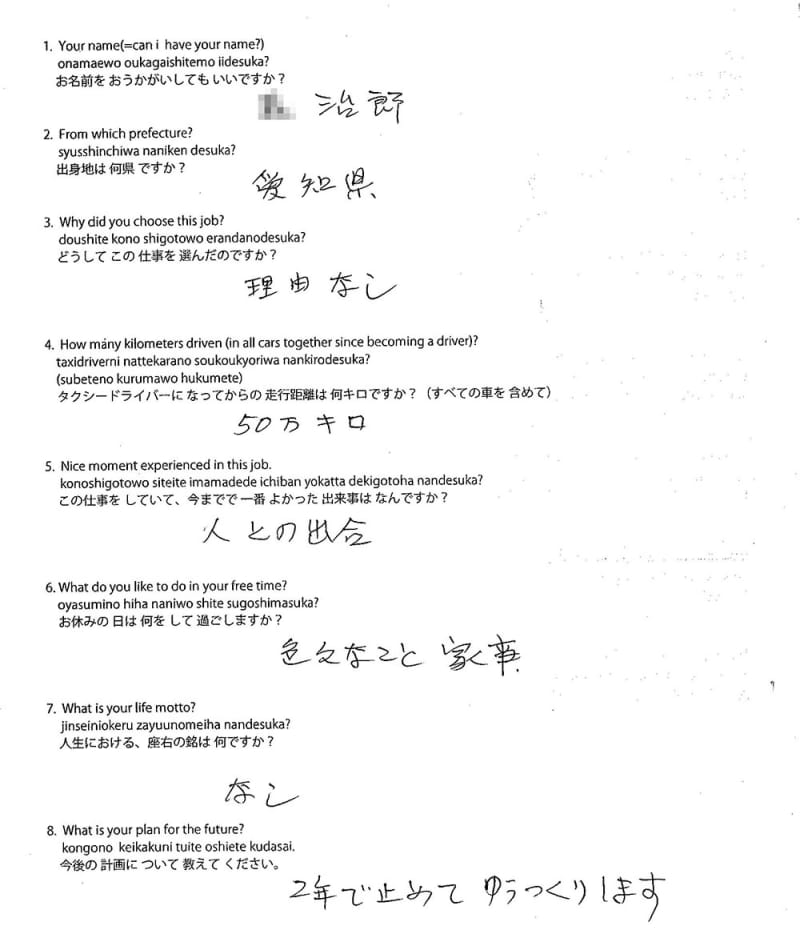 1. Your name(=can i have your name?)
onamaewo oukagaishitemo iidesuka?
お名前を おうかがいしても いいですか？
治郎
2. From which prefecture?
syusshinchiwa naniken desuka?
出身地は 何県 ですか？
愛知県
3. Why did you choose this job?
doushite kono shigotowo erandanodesuka?
どうして この 仕事を 選んだのですか？
理由なし
4. How mány kilometers driven (in all cars together since becoming a driver)?
taxidriverni nattekarano soukoukyoriwa nankirodesuka?
(subeteno kurumawo hukumete)
タクシードライバーに なってからの 走行距離は 何キロですか？（すべての車を 含めて）
50万キロ
5. Nice moment experienced in this job.
konoshigotowo siteite imamadede ichiban yokatta dekigotoha nandesuka?
この仕事を していて、今までで 一番 よかった 出来事は なんですか？
人との出合
6. What do you like to do in your free time?
oyasumino hiha naniwo shite sugoshimasuka?
お休みの 日は 何を して 過ごしますか？
色々なこと 家事
7. What is your life motto?
jinseiniokeru zayuunomeiha nandesuka?
人生における、座右の銘は 何ですか？
なし
8. What is your plan for the future?
kongono keikakuni tuite oshiete kudasai.
今後の 計画に ついて 教えて ください。
2年で止めて ゆうつくりします